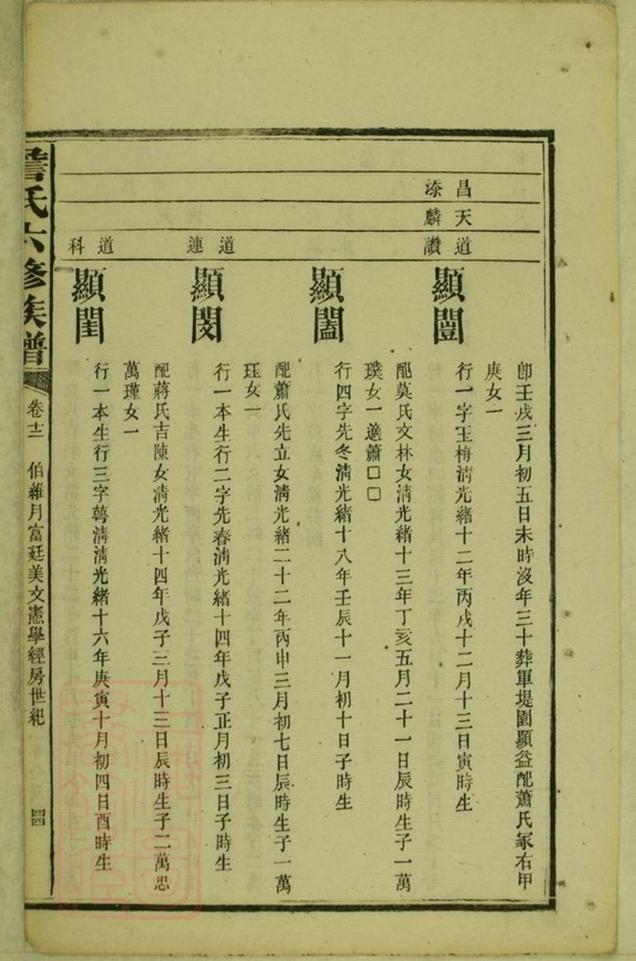 昌添
天麟
道讚
即壬戌三月初五日未時沒年三十葬軍堤園顯益配蕭氏冢右甲
庚女一
顯闓
行一字玉梅清光緒十二年丙戌十二月十三日寅時生
配莫氏文林女清光緒十三年丁亥五月二十一日辰時生子一萬
璞女一適蕭□□
顯闔
行四字先冬清光緒十八年壬辰十一月初十日子時生
配蕭氏先立女清光緒二十二年丙申三月初七日辰時生子一萬
珏女一
道連
顯閔
行一本生行二字先春清光緒十四年戊子正月初三日子時生
配蔣氏吉陳女清光緒十四年戊子三月十三日辰時生子二萬忠
萬瑾女一
道科
顯閨
行一本生行三字蕚清清光緒十六年庚寅十月初四日酉時生
詹氏六修族譜
卷十二 伯維月富廷美文憲學經房世紀
四四